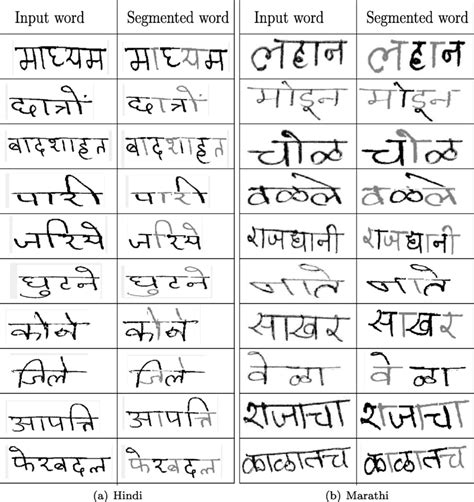 Input word Segmented word Input word Segmented word
माध्यम माध्यम लहान लहान
छात्रों छात्रों मोडून मोडून
बादशाहत बादशाहत चोळ चोळ
पारी पारी वळले वळले
जरिये जरिये राजधानी राजधानी
घुटने घुटने जाते जाते
कोने कोने साखर साखर
जिले जिले वेळा वेळा
आपत्ति आपत्ति राजाचा राजाचा
फेरबदल फेरबदल काळातच काळातच
(a) Hindi (b) Marathi